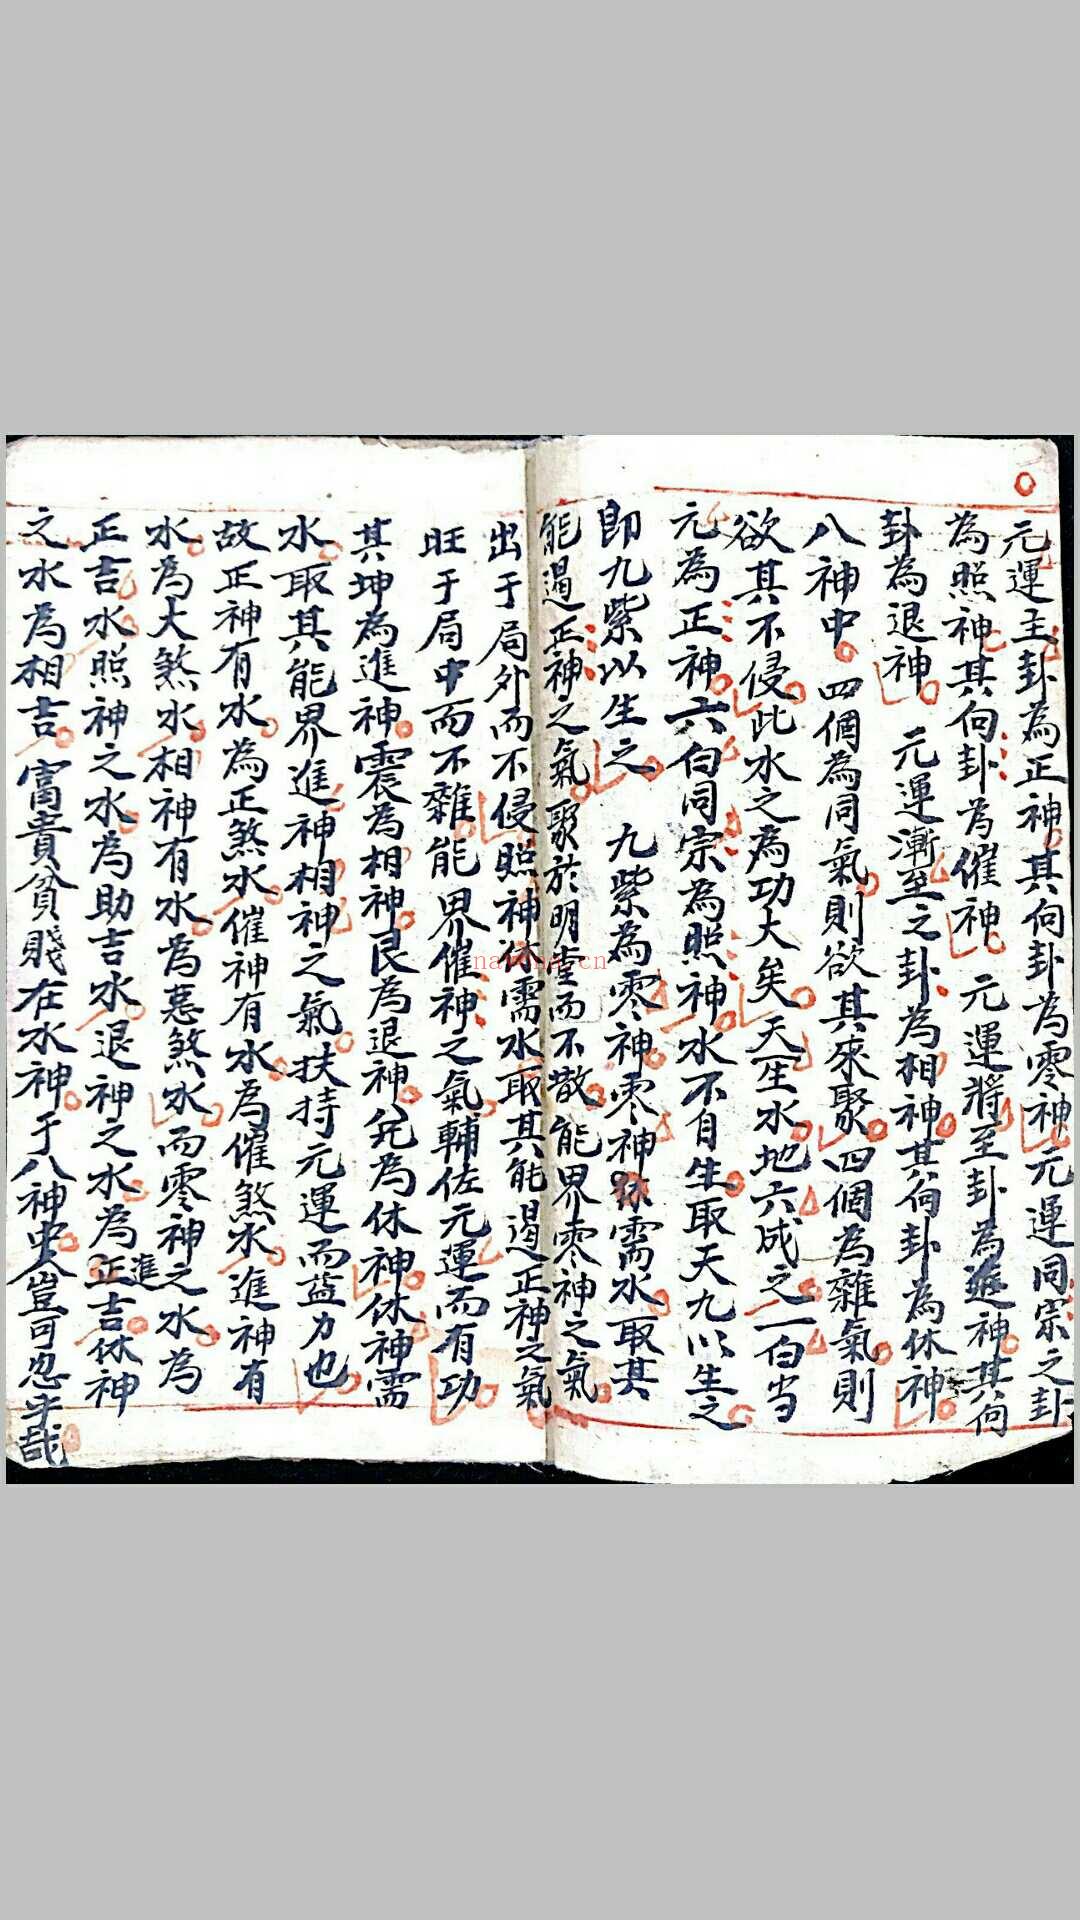 元運主卦為正神其向卦為零神元運同宗之卦
為照神其向卦為催神 元運將至卦為進神其向
卦為退神 元運漸至之卦為相神其向卦為休神
八神中四個為同氣則欲其來聚四個為雜氣則
欲其不侵此水之為功大矣天一生水地六成之一白当
元為正神六白同宗為照神水不自生取天九以生之
即九紫以生之 九紫為零神零神需水取其
能遏正神之氣聚於明堂而不散能界零神之氣
出于局外而不侵照神亦需水取其能遏正神之氣
旺于局中而不雜能界催神之氣輔佐元運而有功
其坤為進神震為相神艮為退神兌為休神休神需
水取其能界進神相神之氣扶持元運而益力也
故正神有水為正煞水催神有水為催煞水進神有
水為大煞水相神有水為惡煞水而零神之水為
正吉水照神之水為助吉水退神之水為進吉休神
之水為相吉富貴貧賤在水神于八神中岂可忽乎哉
nayona.cn